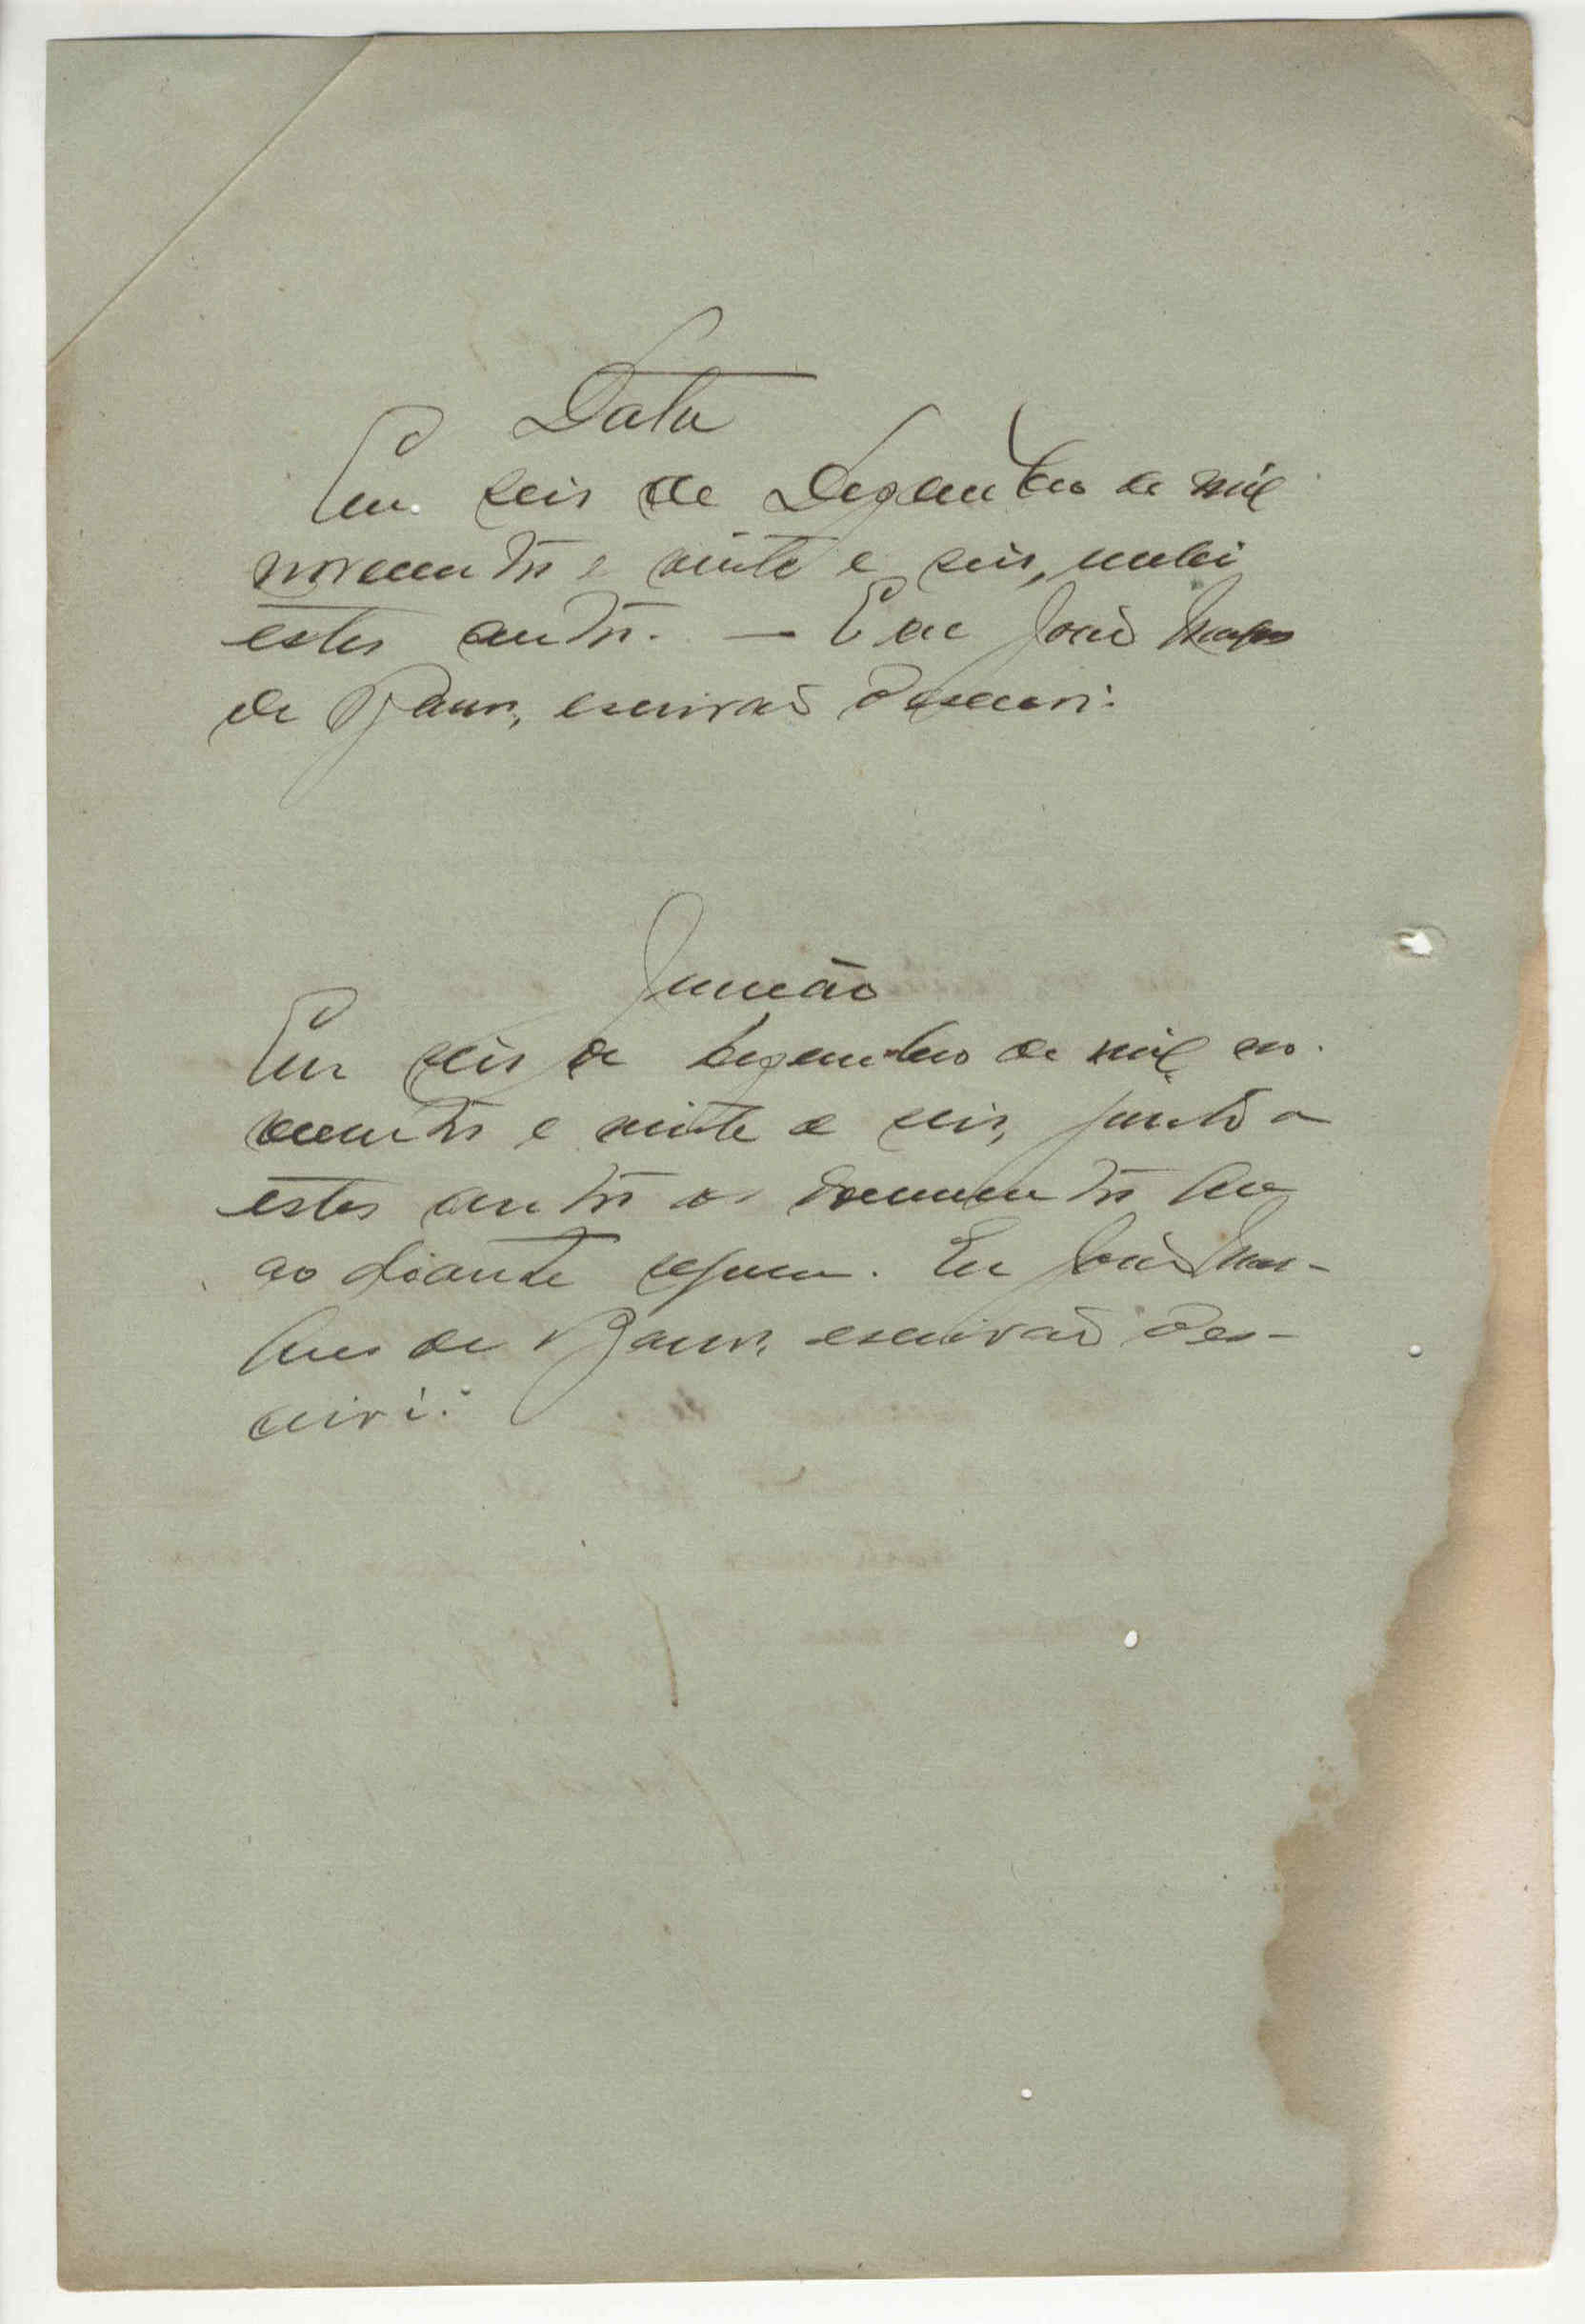 Data
Em seis de Dezembro de mil
novecentos e vinte e seis, recebi
estes autos. — Eu João Marques
de Barros, escrivão o escrevi.
Juncção
Em seis de Dezembro de mil no-
vecentos e vinte e seis, junto a
estes autos os documentos que
ao diante seguem. Eu João Mar-
ques de Barros, escrivão o es-
crevi.